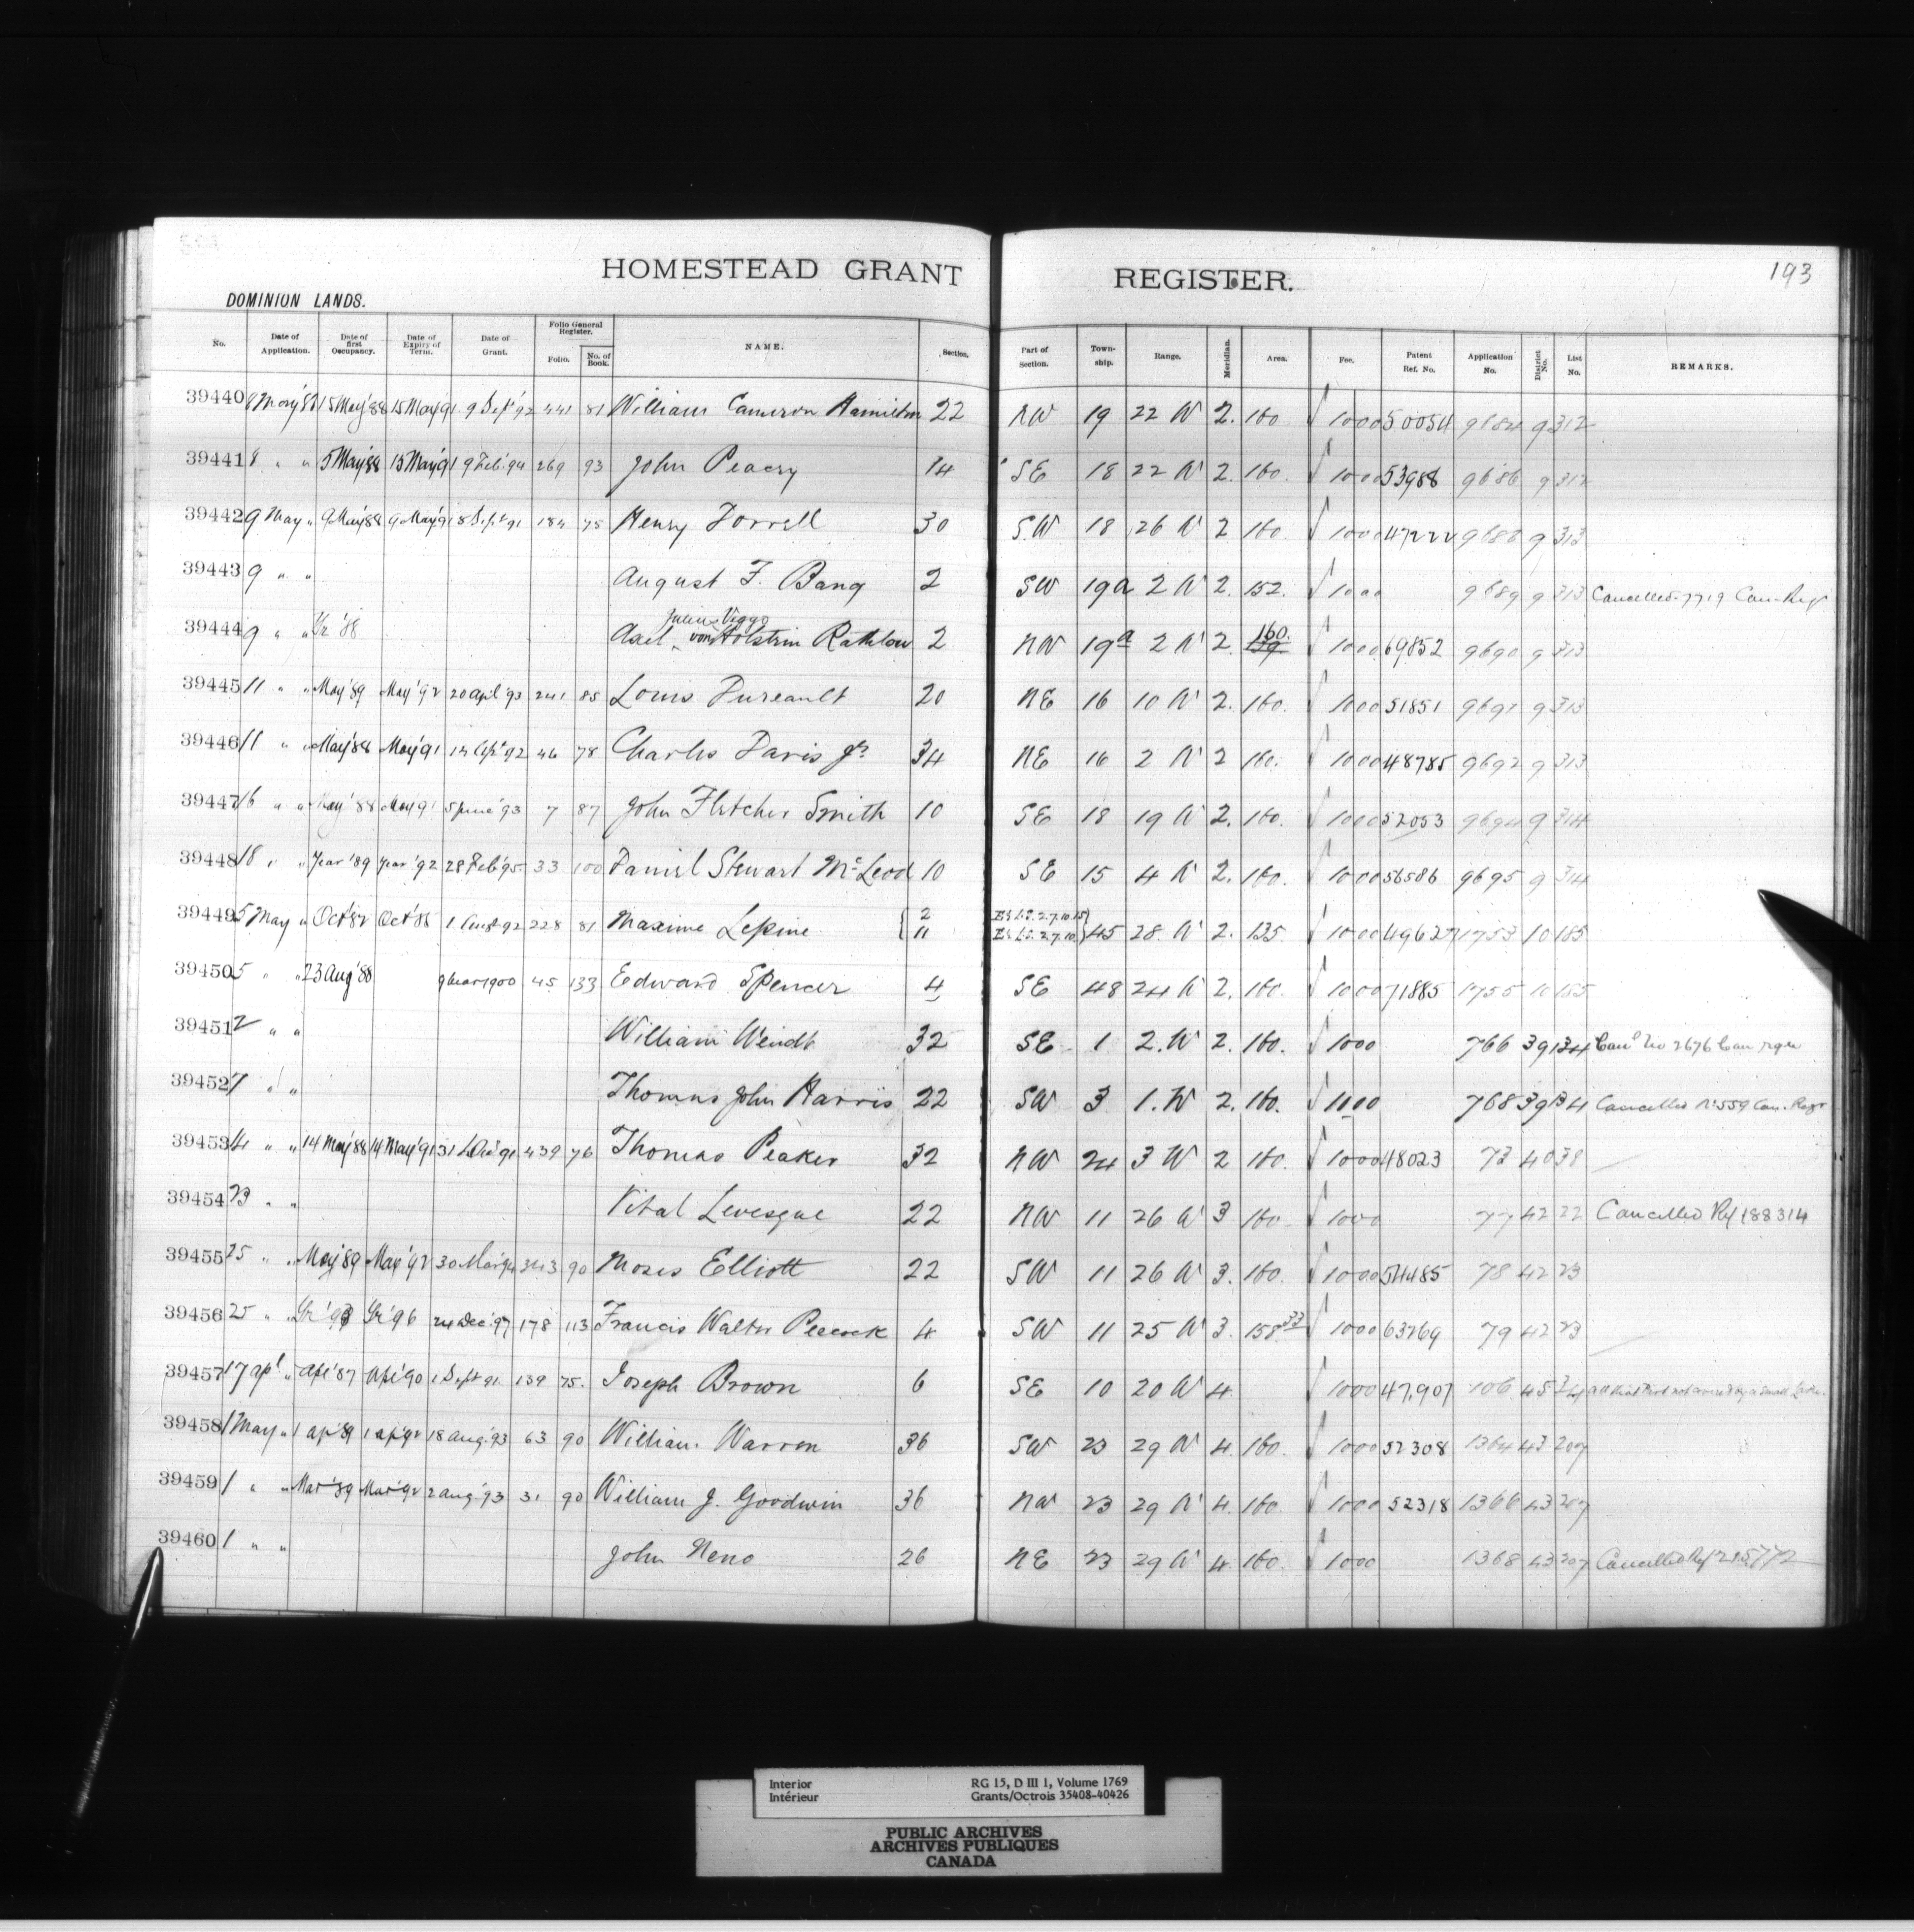 HOMESTEAD GRANT REGISTER. 193
DOMINION LANDS.
No. Date of Application. Date of first Occupancy. Date of Expiry of Term. Date of Grant. Folio General Register. Folio. No. of Book. NAME. Section. Part of Section. Town-ship. Range. Meridian. Area. Fee. Patent Ref. No. Application No. District No. List No. REMARKS.
39440 8 May '88 15 May '88 15 May '91 9 Sept '92 441 81 William Cameron Hamilton 22 NW 19 22 W 2. 160. √ 10 00 50054 9684 9 312
39441 8 " " 5 May '88 15 May '91 9 Feb. '94 269 93 John Peacey 14 SE 18 22 W 2. 160. √ 10 00 53988 9686 9 312
39442 9 May " 9 May '88 9 May '91 8 Sept 91 184 75 Henry Dorrell 30 S.W 18 26 W 2 160. √ 10 00 47222 9688 9 313
39443 9 " " August F. Bang 2 SW 19a 2 W 2. 152. √ 10 00 9689 9 313 Cancelled 7719 Can. Reg
39444 9 " " Yr '88 Axel Julius Viggo von Holstein Rathlou 2 NW 19a 2 W 2. 160. √ 10 00 69852 9690 9 313
39445 11 " " May '89 May '92 20 April '93 241 85 Louis Dureault 20 NE 16 10 W 2. 160. √ 10 00 51851 9691 9 313
39446 11 " " May '88 May '91 14 Apl '92 46 78 Charles Davis Jr. 34 NE 16 2 W 2 160. √ 10 00 48785 9692 9 313
39447 16 " " May '88 May 91 5 June '93 7 87 John Fletcher Smith 10 SE 18 19 W 2. 160. √ 10 00 52053 9694 9 314
39448 18 " " Year '89 Year '92 28 Feb '95 33 100 Daniel Stewart McLeod 10 SE 15 4 W 2. 160. √ 10 00 56586 9695 9 314
39449 5 May " Oct '82 Oct '85 1 Aust 92 228 81 Maxime Lepine { 2 E½ L.S. 2.7.10.15 } 45 28. W 2. 135. √ 10 00 49627 1753 10 185
11 E½ L.S. 2.7.10
39450 5 " " 23 Aug '88 9 Mar 1900 45 133 Edward Spencer 4 SE 48 24 W 2. 160. √ 10 00 71885 1755 10 185
39451 2 " " William Wendt 32 SE 1 2. W 2. 160. √ 10 00 766 39 134 Cand No 2676 Can rgr
39452 7 " " Thomas John Harris 22 SW 3 1. W 2. 160. √ 10 00 768 39 134 Cancelled No 559 Can. Regr
39453 14 " " 14 May '88 14 May '91 31 Dec 91 439 76 Thomas Peaker 32 NW 24 3 W 2 160. √ 10 00 48023 73 40 38
39454 23 " " Vital Levesque 22 NW 11 26 W 3 160. √ 10 00 77 42 22 Cancelled Ref 188314
39455 25 " " May '89 May '92 30 Mar '94 343 90 Moses Elliott 22 SW 11 26 W 3. 160. √ 10 00 54485 78 42 23
39456 25 " " Yr '93 Yr '96 24 Dec. '97 178 113 Francis Walter Peacock 4 SW 11 25 W 3. 158.33 √ 10 00 63269 79 42 23
39457 17 apl " Apl '87 Apl '90 1 Sept 91. 139 75. Joseph Brown 6 SE 10 20 W 4. √ 10 00 47,907 106 45 34 all that Part not covered by a small Lake.
39458 1 May " 1 ap '89 1 ap '92 18 aug. '93 63 90 William Warren 36 SW 23 29 W 4. 160. √ 10 00 52308 1364 43 207
39459 1 " " Mar '89 Mar '92 2 aug. '93 31 90 William J. Goodwin 36 NW 23 29 W 4. 160. √ 10 00 52318 1366 43 207
39460 1 " " John Neno 26 NE 23 29 W 4. 160. √ 10 00 1368 43 207 Cancelled Ref 215772
Interior RG 15, D III 1, Volume 1769
Intérieur Grants/Octrois 35408-40426
PUBLIC ARCHIVES
ARCHIVES PUBLIQUES
CANADA